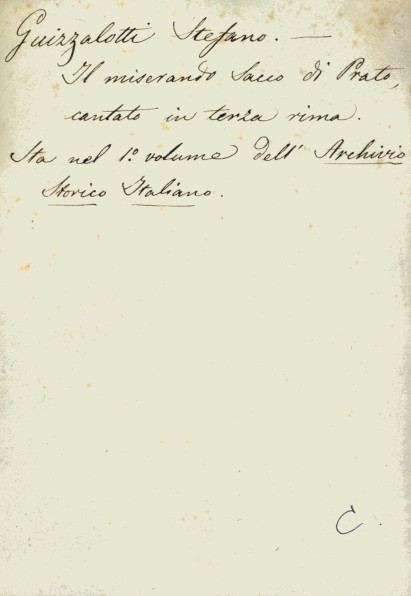 Guizzalotti Stefano. —
Il miserando Sacco di Prato,
cantato in terza rima.
Sta nel 1.º volume dell' Archivio
Storico Italiano.
C.